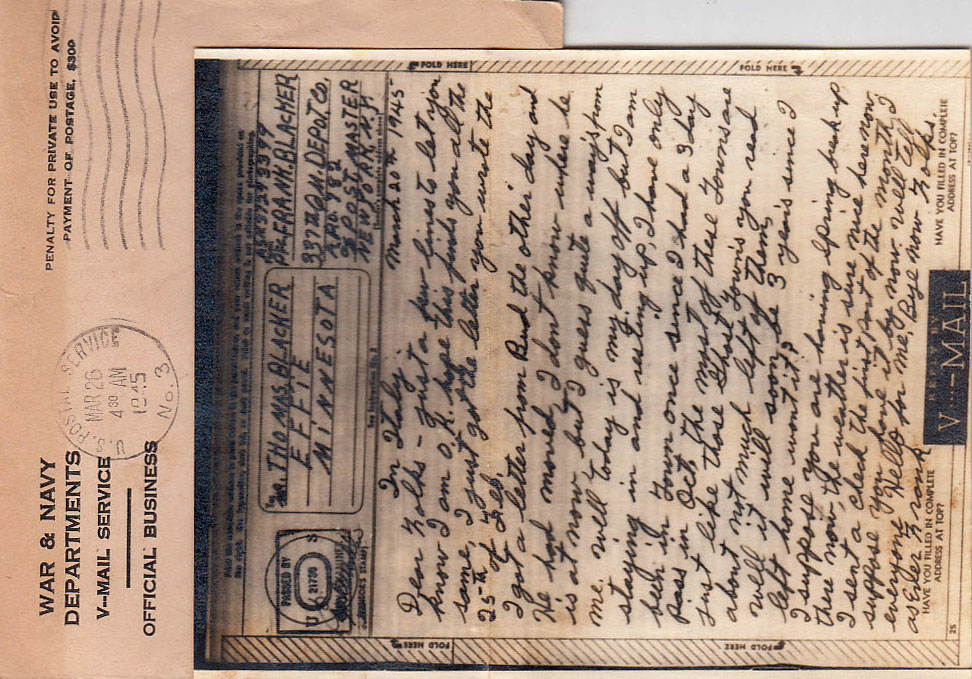 WAR & NAVY
DEPARTMENTS
V--MAIL SERVICE
OFFICIAL BUSINESS
PENALTY FOR PRIVATE USE TO AVOID
PAYMENT OF POSTAGE, $300
U.S. POSTAL SERVICE
MAR 26
4 30 AM
1945
No. 3
FOLD HERE
FOLD HERE
PASSED BY
U S
21700
CENSOR'S STAMP
To
MR. THOMAS BLACKER
EFFIE
MINNESOTA
Pfc FRANK BLACKER
337TH Q.M. DEPOT Co.
APO 782
% POSTMASTER
NEW YORK N.Y.
March 20th 1945
In Italy
Dear Folks - just a few lines to let you
know I am O.K. hope this finds you all the
same, I just got the letter you wrote the
25th of Feb.
I got a letter from Bud the other day and
He had moved, I dont know where he
is at now but I guess quite a way's from
me. well today is my day off but I am
staying in and resting up, I have only
been in Town once since I had a 3 day
pass in Oct the most of these Towns are
just like those Ghost Town's you read
about not much left of them,
well it will soon be 3 year's since I
left home wont it?
I suppose you are having spring break up
there now, the weather is sure nice here now,
I sent a check the first part of the month I
suppose you have it by now, now well tell
everyone Hello for me. Bye now Folks.
as Ever Frank
HAVE YOU FILLED IN COMPLETE
ADDRESS AT TOP?
V--MAIL
HAVE YOU FILLED IN COMPLETE
ADDRESS AT TOP?
25
FOLD HERE
FOLD HERE